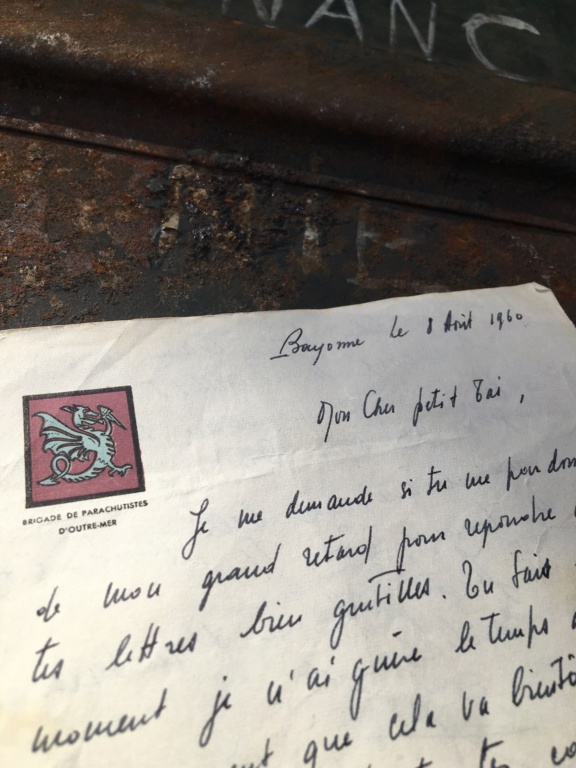 NANC
Bayonne le 8 Août 1960
Mon Cher petit Tai,
BRIGADE DE PARACHUTISTES
D'OUTRE-MER
Je me demande si tu me pardon
de mon grand retard pour repondre
tes lettres bien gentilles. Tu sais
moment je n'ai guère le temps
que cela va bientô